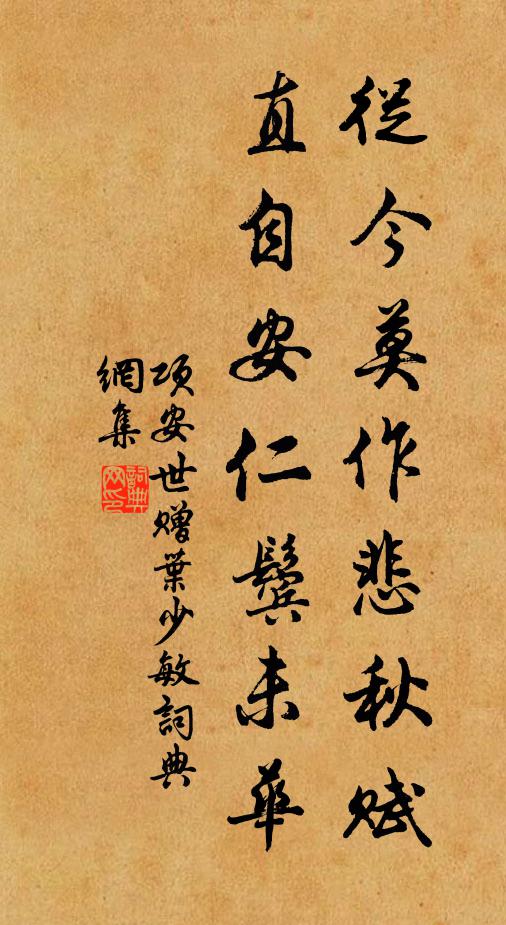 從今莫作悲秋賦
直自安仁鬢未華
項安世贈葉少敏詞典
網集
詞典
网印